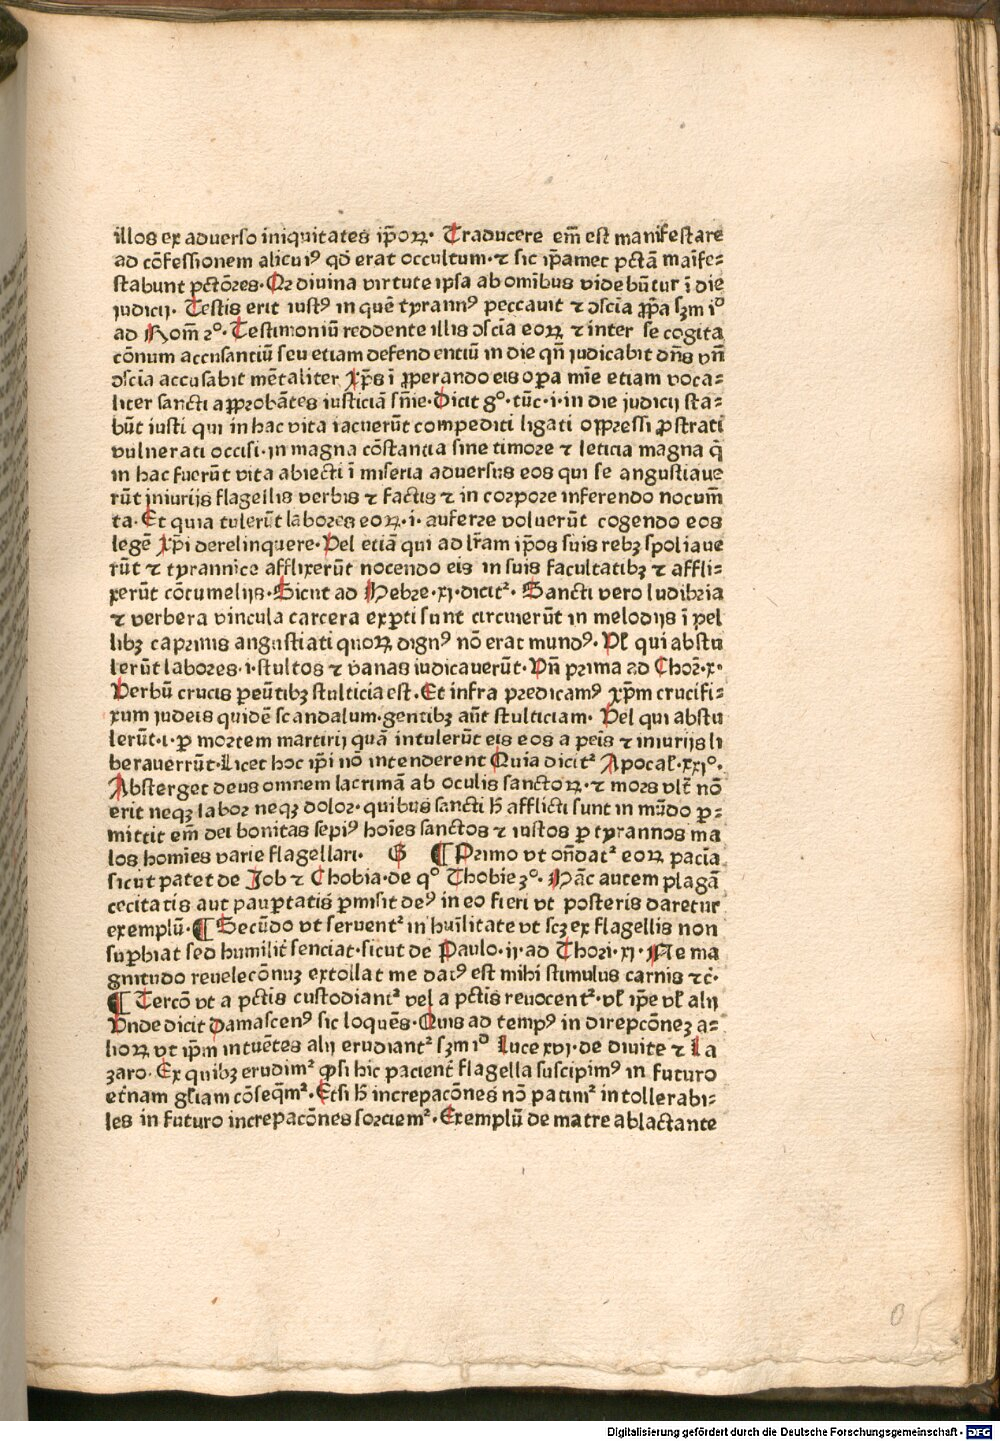 illos ex aduerso iniquitates ip̄oꝝ· Traducere em̄ est manifestare
ad cōfessionem alicuiꝰ qd̓ erat occultum·⁊ sic ip̄amet pctā maife⸗
stabunt pctōres·Qꝛ diuina virtute ipsa ab omībus videbūtur ī die
iudicij· Testis erit iustꝰ in quē tyrannꝰ peccauit ⁊ ↄscīa ꝓpa sꝫm i°
ad Rom̄ 2°·Testimoniū reddente illis ↄscīa eoꝝ ⁊ inter se cogita
cōnum accusantiū seu etiam defendentiū in die qn̄ iudicabit dn̄s vn̄
ↄscīa accusabit mētaliter xp̄s ī ꝓperando eis oꝑa mīe etiam voca⸗
liter sancti aꝓprobātes iusticiā sn̄ie·Dicit g°·tūc·i·in die iudicij sta⸗
būt iusti qui in hac vita iacuerūt compediti ligati oppressi ꝓstrati
vulnerati occisi·in magna cōstantia sine timore ⁊ leticia magna q̄
in hac fuerūt vita abiecti ī miseria aduersus eos qui se angustiaue
rūt iniurijs flagellis verbis ⁊ factis ⁊ in corpore inferendo nocum̄
ta·Et quia tulerūt labores eoꝝ·i·auferre voluerūt cogendo eos
legē xp̄i derelinquere·Vel etiā qui ad lr̄am ip̄os suis rebꝫ spoliaue
rūt ⁊ tyrannice afflixerūt nocendo eis in suis facultatibꝫ ⁊ affli⸗
xerūt cōtumelijs·Sicut ad Hebre·xi·dicit²·Sancti vero ludibria
⁊ verbera vincula carcera exꝑti sunt circuierūt in melodijs ī pel
libꝫ caprinis angustiati quoꝝ dignꝰ nō erat mundꝰ·Vl̄ qui abstu
lerūt labores·i·stultos ⁊ vanas iudicauerūt·Vn̄ prima ad Chor̄·x·
Verbū crucis ꝑeūtibꝫ stulticia est·Et infra predicamꝰ xp̄m crucifi⸗
xum iudeis quidē scandalum·gentibꝫ aūt stulticiam· Vel qui abstu
lerūt·i·ꝑ mortem martirij quā intulerūt eis eos a peīs ⁊ iniurijs li
berauerrūt·Licet hoc ip̄i nō intenderent Quia dicit² Apocal̄·xxi°·
Absterget deus omnem lacrimā ab oculis sanctoꝝ·⁊ mors vlt̄ nō
erit neqꝫ labor neqꝫ dolor·quibus sancti h̄ afflicti sunt in mūdo ꝑ⸗
mittit em̄ dei bonitas sepiꝰ hoīes sanctos ⁊ iustos ꝑ tyrannos ma
los homīes varie flagellari· G ¶Primo vt on̄dat² eoꝝ pacīa
sicut patet de Job ⁊ Thobia·de q° Thobie 3°·Hāc autem plagā
cecitatis aut pauꝑtatis ꝑmisit deꝰ in eo fieri vt posteris daretur
exemplū·¶Secūdo vt seruent² in huīlitate vt scꝫ ex flagellis non
suꝑbiat sed humilit̄ senciat·sicut de Paulo·ij·ad Chori·xi·Ne ma
gnitudo reuelecōnuꝫ extollat me datꝰ est mihi stimulus carnis ⁊c̄·
¶Tercō vt a pctīs custodiant² vel a pctīs reuocent²·vl̄ ip̄e vl̄ alij
Vnde dicit Damascenꝰ sic loquēs·Quis ad tempꝰ in direpcōneꝫ a⸗
lioꝝ vt ip̄m intuētes alij erudiant² sꝫm i° Luce xvi·de diuite ⁊ La
zaro·Ex quibꝫ erudim² ꝙ si hic pacient̄ flagella suscipimꝰ in futuro
et̄nam gl̄iam cōseq̄m²·Etsi h̄ increpacōnes nō patim² intollerabi⸗
les in futuro increpacōnes sorciem²·Exemplū de matre ablactante
Digitalisierung gefördert durch die Deutsche Forschungsgemeinschaft - DFG